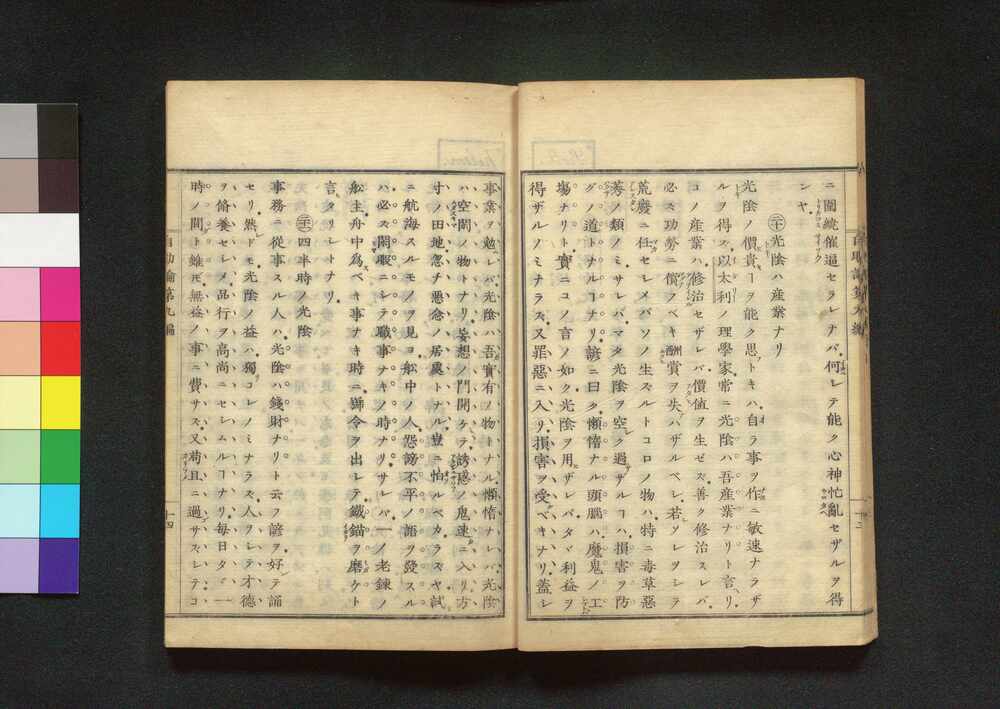 ニ圍繞催逼セラレナバ何ンゾ能ク心神忙亂セザルヲ得
ンヤ
二十 光陰ハ産業ナリ
光陰ノ價貴キヿヲ能ク思フトキハ自ラ事ヲ作ニ敏速ナラザ
ルヲ得ス以太利ノ理學家常ニ光陰ハ吾産業ナリト言リ
コノ産業ハ修治セザレバ價値ヲ生ゼス善ク修治スレバ
必ス功勞ニ償フベキ酬賞ヲ失ハザルベシ若ソレヲシテ
荒廢ニ任セシメバソノ生スルトコロノ物ハ特ニ毒草惡
莠ノ類ノミサレバマタ光陰ヲ空ク過サザルヿハ損害ヲ防
グノ道トナルヿナリ諺ニ曰ク懶惰ナル頭腦ハ魔鬼ノ工
塲ナリト實ニコノ言ノ如ク光陰ヲ用ザレバタヾ利益ヲ
得ザルノミナラス又罪惡ニ入リ損害ヲ受ベキナリ蓋シ
事業ヲ勉レバ光陰ハ吾實有ノ物トナル懶惰ナレバ光陰
ハ空間ノ物トナリ妄想ノ門開ケテ誘惑ノ鬼速ニ入リ方
寸ノ田地忽チ惡念ノ居處トナル豈ニ怕ルベカラスヤ試
ニ航海スルモノヲ見ヨ船中ノ人怨謗不平ノ語ヲ發スル
ハ必ス閑暇ニシテ職事ナキノ時ナリサレバ一ノ老錬ノ
舩主舟中爲ベキ事ナキ時ニ號令ヲ出シテ鐵錨ヲ磨ケト
言タリシトナリ
二十一 四半時ノ光陰
事務ニ從事スル人ハ光陰ハ錢財ナリト云フ諺ヲ好テ誦
セリ然ドモ光陰ノ益ハ獨コレノミナラス人ヲシテ才德
ヲ脩養セシメ品行ヲ高尚ニセシムルヿナリ毎日タヾ一
時ノ間ト雖モ無益ノ事ニ費サス又苟且ニ過サスシテコ
自助論第九編
十四